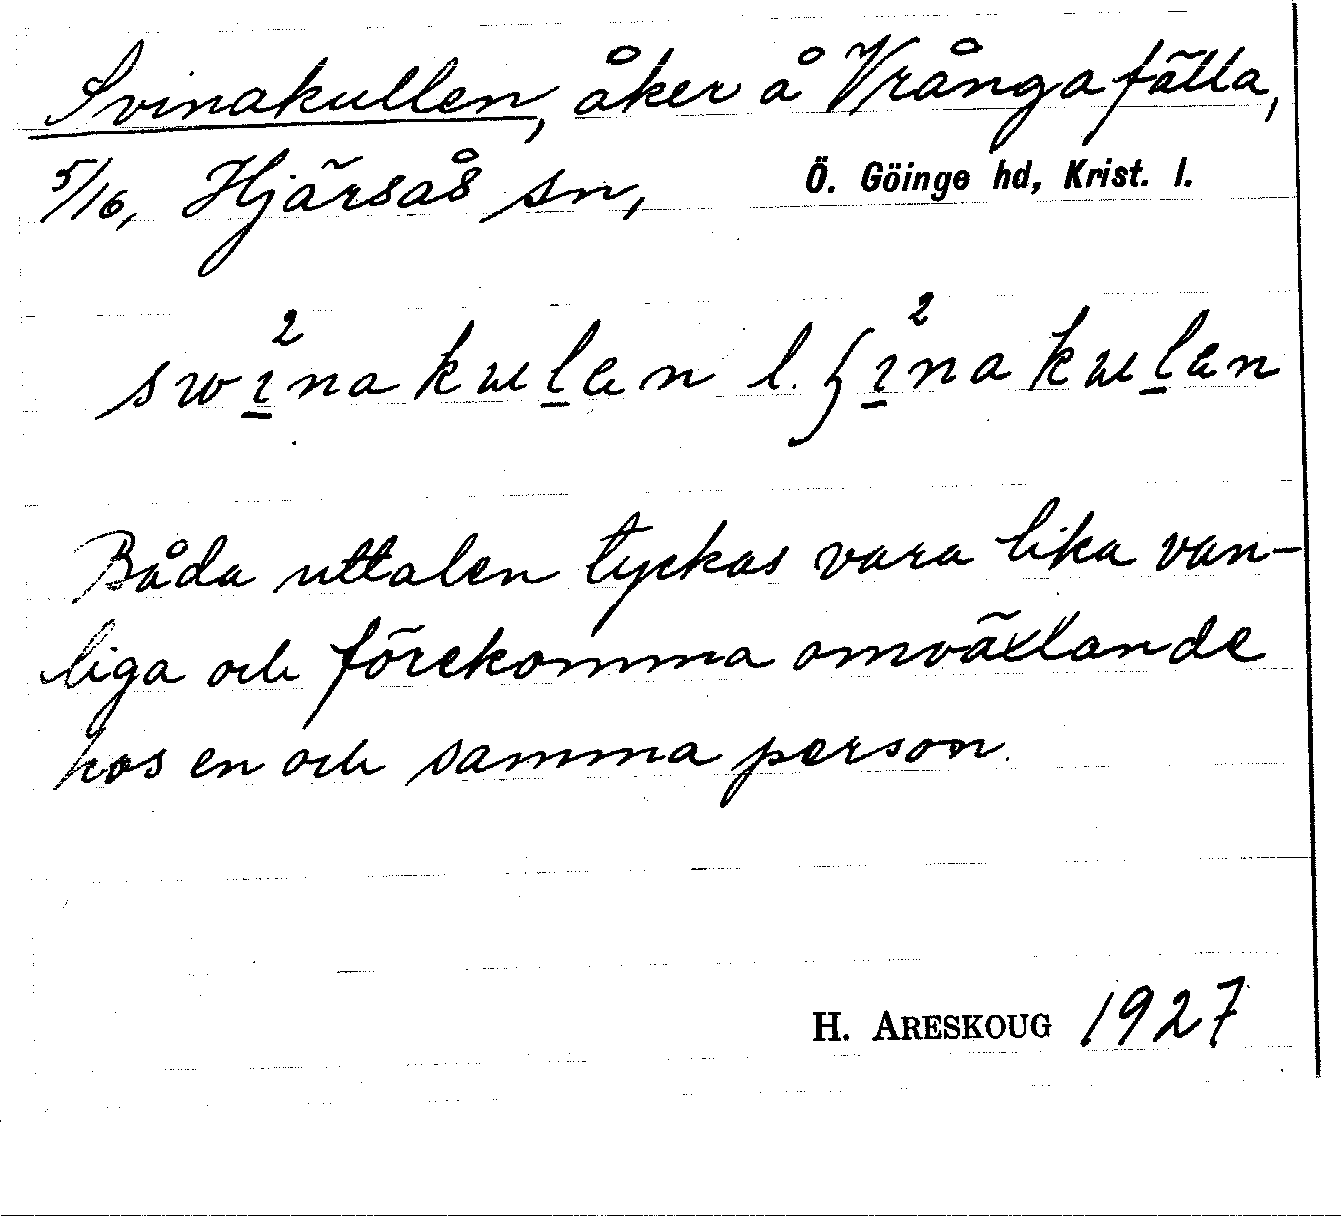 Svinakullen, åker å Vrångafälla,
5/16, Hjärsås sn, Ö. Göinge hd, Krist. l.
swi²nakulen l. i²nakulen
Båda uttalen tyckas vara lika van-
liga och förekomma omväxlande
hos en och samma person.
H. ARESKOUG 1927